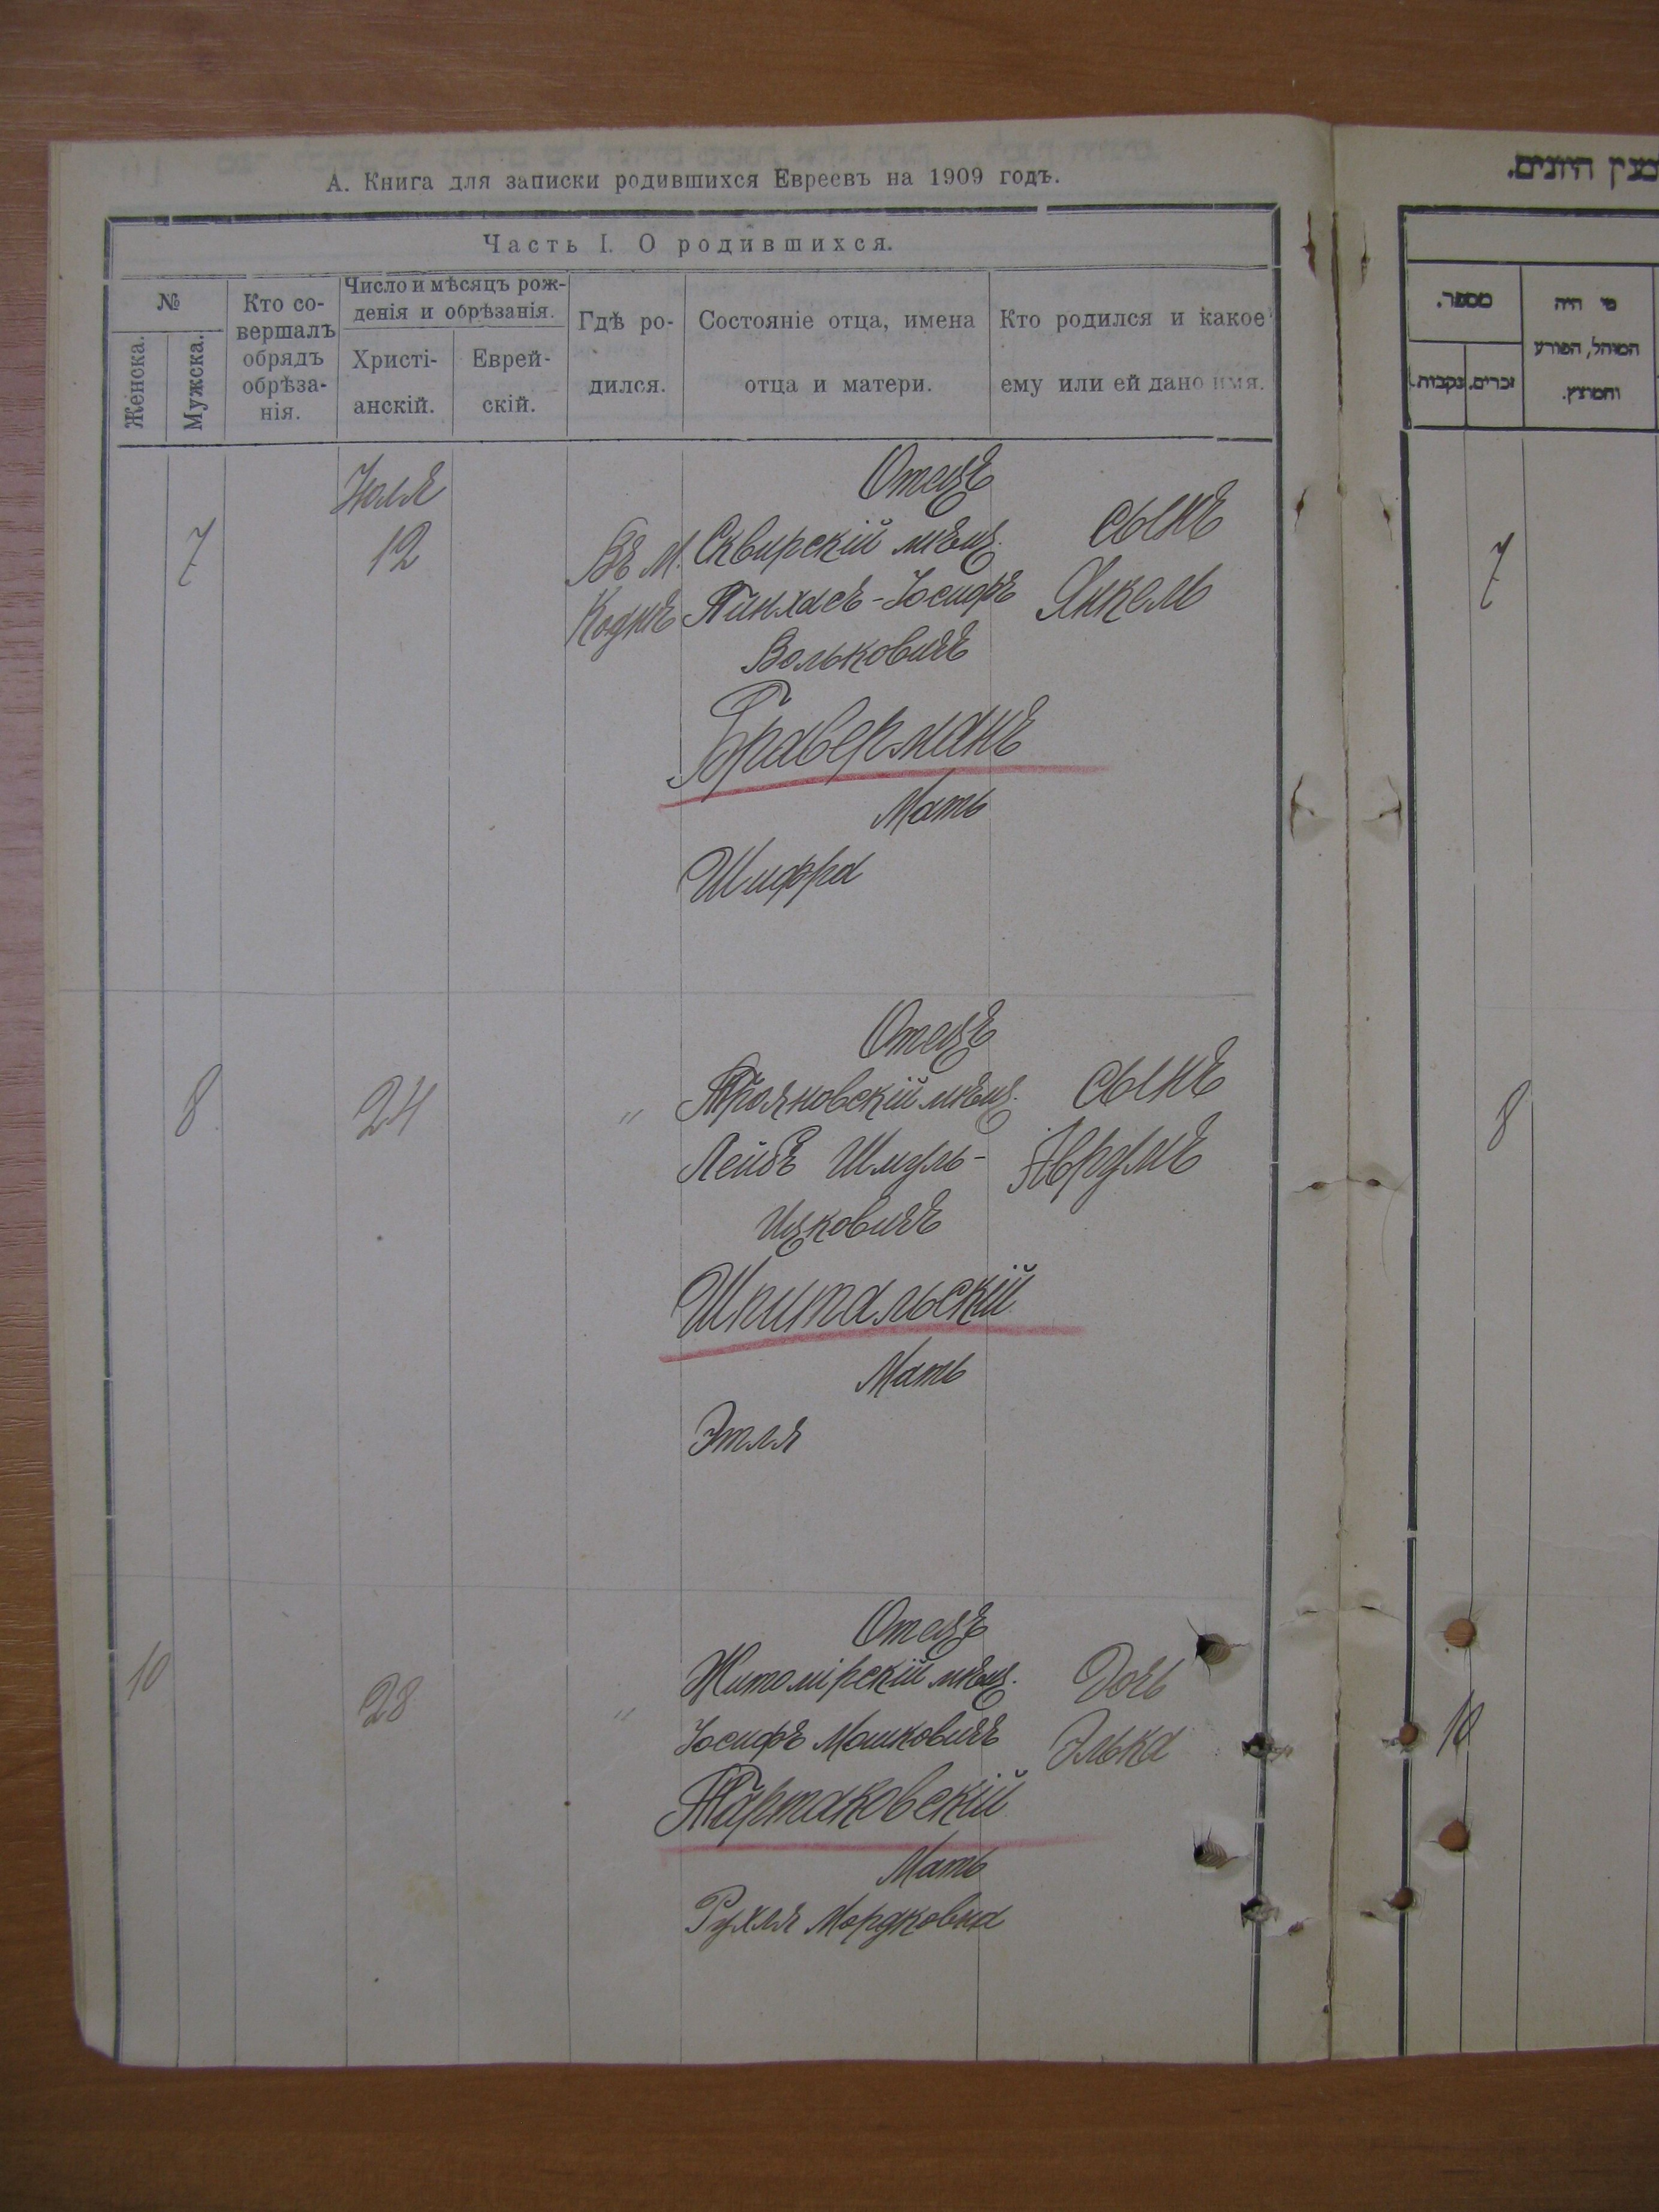 А. Книга для записки родившихся Евреевъ на 1909 годъ.
Часть I. О родившихся.
№
Женска.
Мужска.
Кто со-
вершалъ
обрядъ
обрѣза-
нія.
Число и мѣсяцъ рож-
денія и обрѣзанія.
Христі-
анскій.
Еврей-
скій.
Гдѣ ро-
дился.
Состояніе отца, имена
отца и матери.
Кто родился и какое
ему или ей дано имя.
7
Іюля
12
Въ м.
Коднѣ
Отецъ
Сквирскій мѣщ.
Пинхасъ-Іосифъ
Вольковичъ
Браверманъ
Мать
Шифра
сынъ
Янкель
8
24
"
Отецъ
Трояновскій мѣщ.
Лейбъ Шмуль-
Ицковичъ
Шпитальскій
Мать
Этля
сынъ
Аврумъ
10
28
"
Отецъ
Житомірскій мѣщ.
Іосифъ Мошковичъ
Тартаковскій
Мать
Рухля Мордковна
Дочь
Элька
מספר.
נקבות.
זכרים.
מי היה
המוהל, הפורע
והמוצץ.
7
8
10